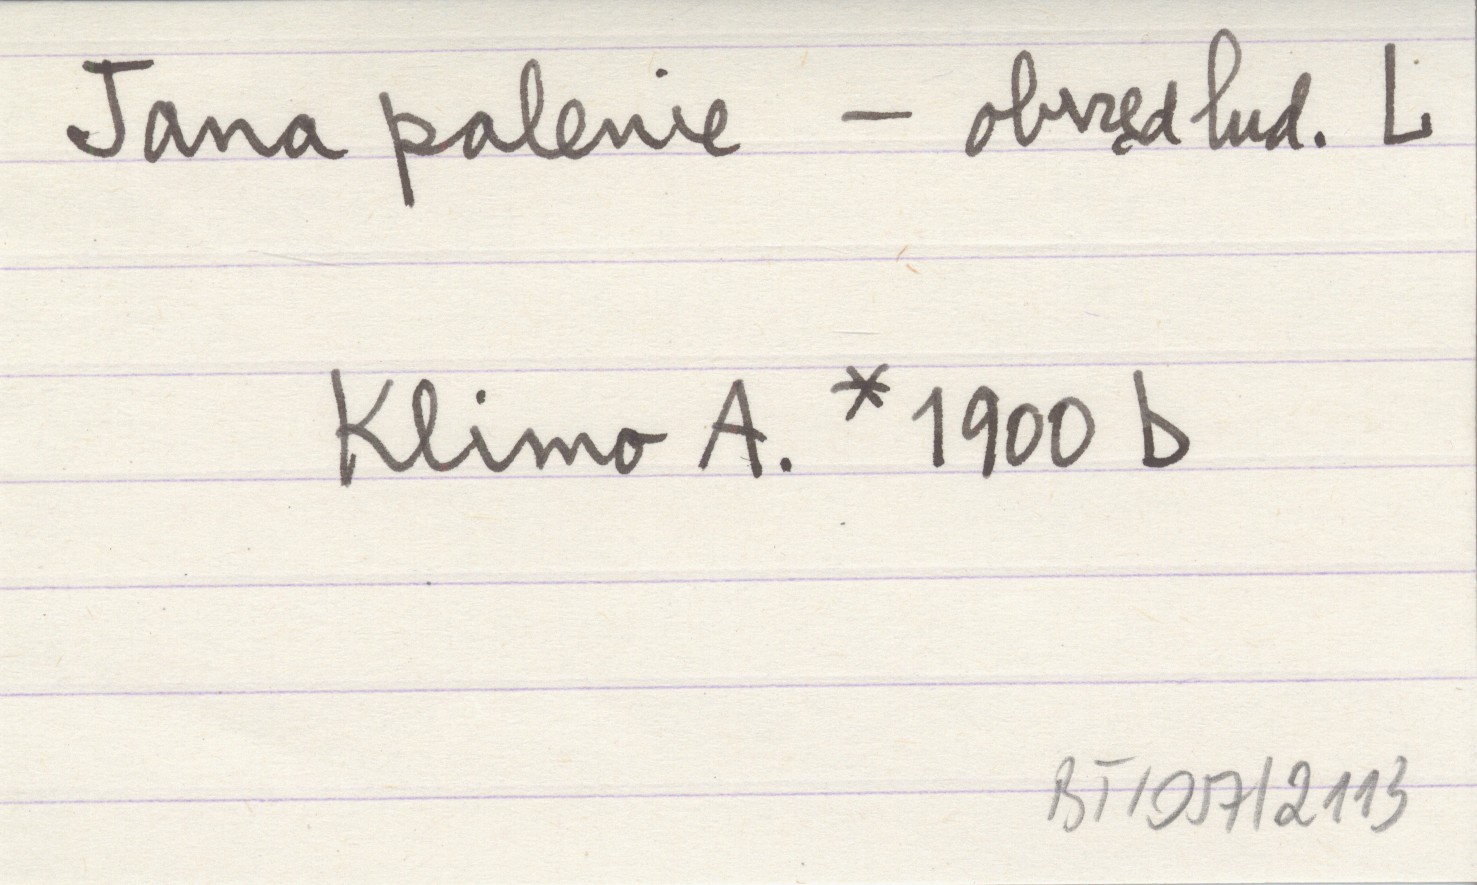 Jana palenie – obrzęd lud. L
Klimo A. * 1900 b
BT/057/2113